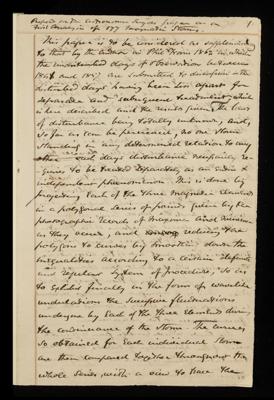 Report on the Autonomous Royal's paper on an
first analysis of 177 Magnetic Storms.
This paper is to be considered as supplemental
to that by the author in Phil Trans 1862 in which
the undisturbed days of observation between
1841 and 1857 are submitted to discussion the
disturbed days having been set apart for
separate and subsequent treatment which
is here described and the results given. The laws
of disturbance being totally unknown, and,
so far as can be perceived, no one storm
standing in any determined relation to any
other each days disturbance necessarily re-
quires to be treated separately as an isolated
independent phenomenon. This is done by
projecting each of the three magnetic elements
in a polygonal series of points given by the
photographic records of
as they occur, and reducing the
polygons to curves by smoothing down the
inequalities according to a certain defined
and regular system of procedure, so as
to exhibit finally in the form of wavelike
undulations the successive fluctuations
undergone by each of the three elements during
the continuance of the storm. The curves
so obtained for each individual storm
are then compared together throughout the
whole series, with a view to trace the